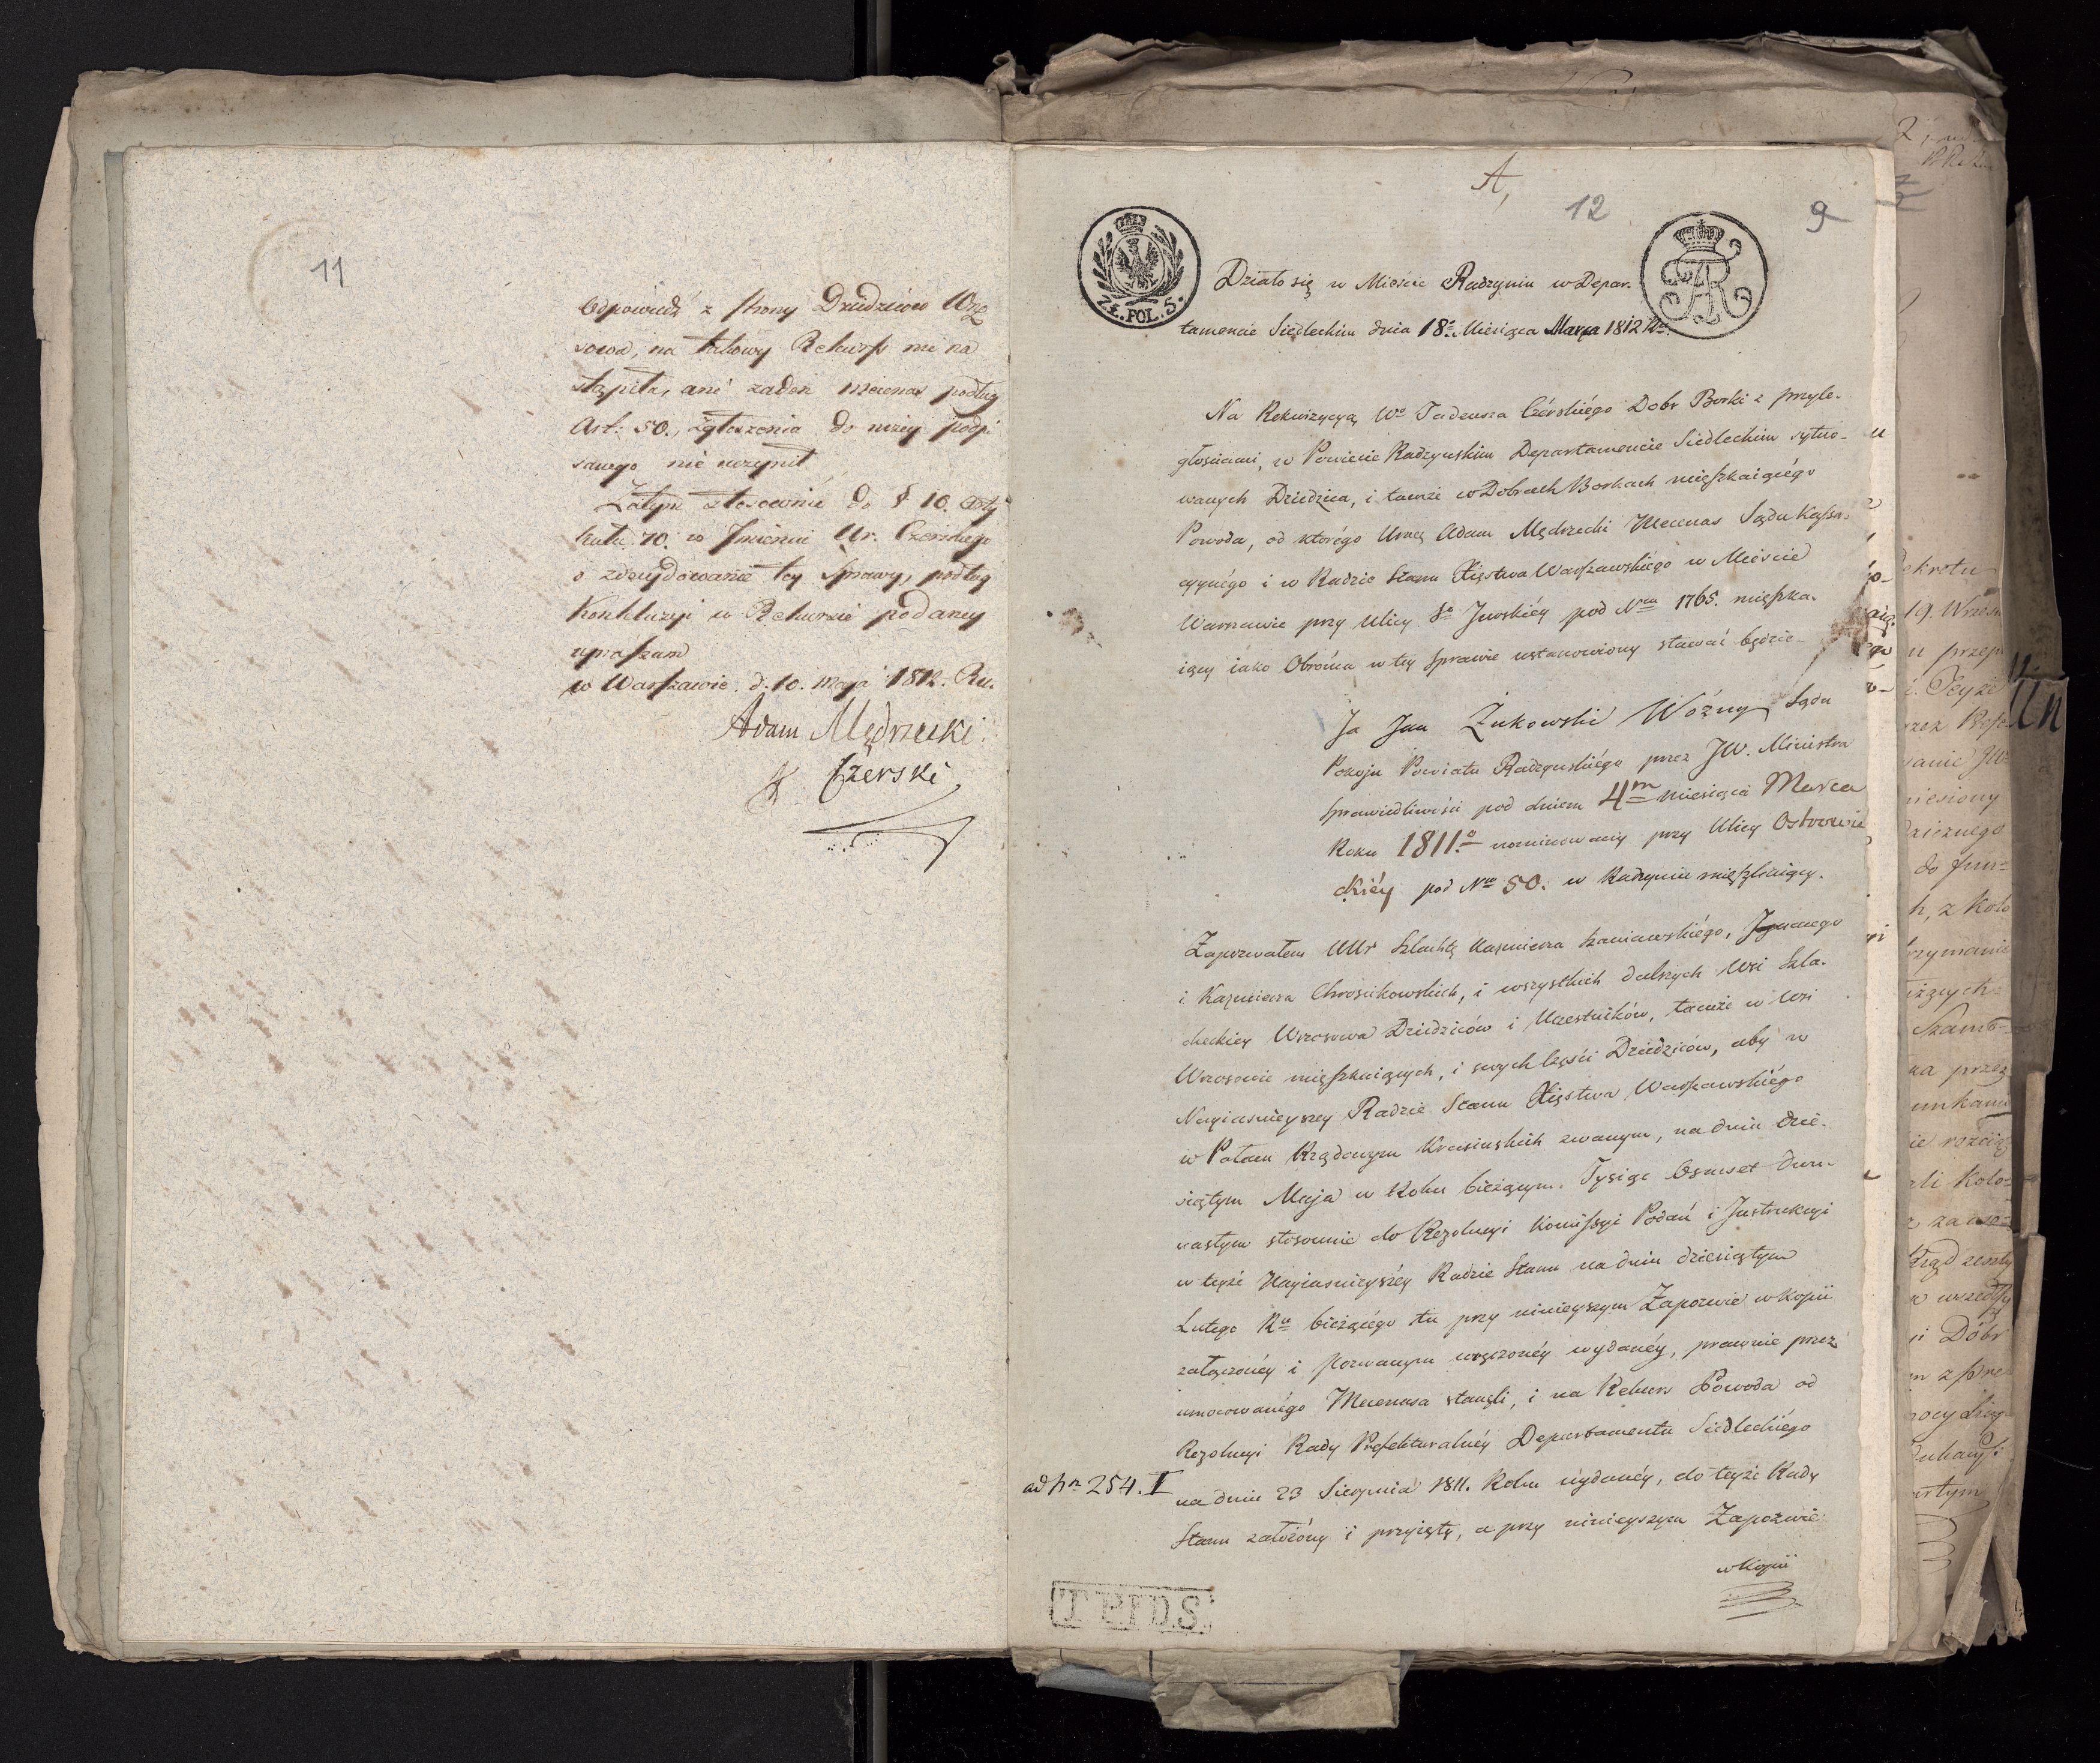 11
Odpowiedź z strony Dziedziców Wrzo
sowa, na takowy Rekurs nie na
stąpiła, ani żaden Mecenas podług
Art: 50., zgłoszenia do niżey podpi
sanego nie uczynił
Zatym stosownie do § 10. Arty
kułu 70. w Imieniu Ur. Czerskiego
o zdecydowanie tey Sprawy, podług
Konkluzyi w Rekursie podaney
upraszam
w Warszawie. d. 10. Maja 1812. Ru.
Adam Mędrzecki
Czerski
A,
12
9
ZŁ. POL. 5.
Działo się w Mieście Radzyniu w Depar-
tamencie Siedleckim dnia 18o Miesiąca Marca 1812 Ro.
Na Rekwizycyą Wo Tadeusza Czérskiégo Dobr Borki z przyle-
głościami, w Powiecie Radzyńskim Departamencie Siedleckim sytuo-
wanych Dziedzica, i tamże w Dobrach Borkach mieszkaiącégo
Powoda, od którégo Urny Adam Mędrzecki Mecenas Sądu Kassa-
cyynégo i w Radzie Stanu Xięstwa Warszawskiégo w Mieście
Warszawie przy Ulicy So Jerskiéy pod Nrm 1765. mieszka-
iący iako Obrońca w tey Sprawie ustanowiony stawać będzie
Ja Jan Żukowski Woźny Sądu
Pokoju Powiatu Radzyńskiégo przez JW. Ministra
Sprawiedliwości pod dniem 4m miesiąca Marca
Roku 1811o nominowany przy Ulicy Ostrowie
ckiéy pod Nrm 50. w Radzyniu mieszkaiący.
Zapozwałem UUr Szlachtę Kazmierza Zaniawskiégo, Ignacego
i Kazmierza Chrosikowskich, i wszystkich dalszych Wsi Szla-
checkiey Wrzosowa Dziedziców i Uczestników, tamże w Wsi
Wrzosowie mieszkaiących, i swych Części Dziedziców, aby w
Nayiasnieyszey Radzie Stanu Xięstwa Warszawskiégo
w Pałacu Rządowym Krasinskich zwanym, na dniu dzie-
siątym Maja w Roku bieżącym. Tysiąc Osmset dwu-
nastym stosownie do Rezolucyi Kommissyi Podań i Instrukcyi
w teyże Nayiasnieyszéy Radzie Stanu na dniu dziesiątym
Lutego Ru bieżącégo tu przy ninieyszym Zapozwie w Kopii
załączonéy i Pozwanym wręczonéy wydanéy, prawnie przez
umocowanégo Mecenasa stanęli, i na Rekurs Powoda od
Rezolucyi Rady Prefekturalnéy Departamentu Siedleckiégo
ad Nr 254. I
na dniu 23 Sierpnia 1811. Roku wydanéy, do teyże Rady
Stanu założony i przyięty, a przy ninieyszym Zapozwie
w Kopii
T.P.I D.S.